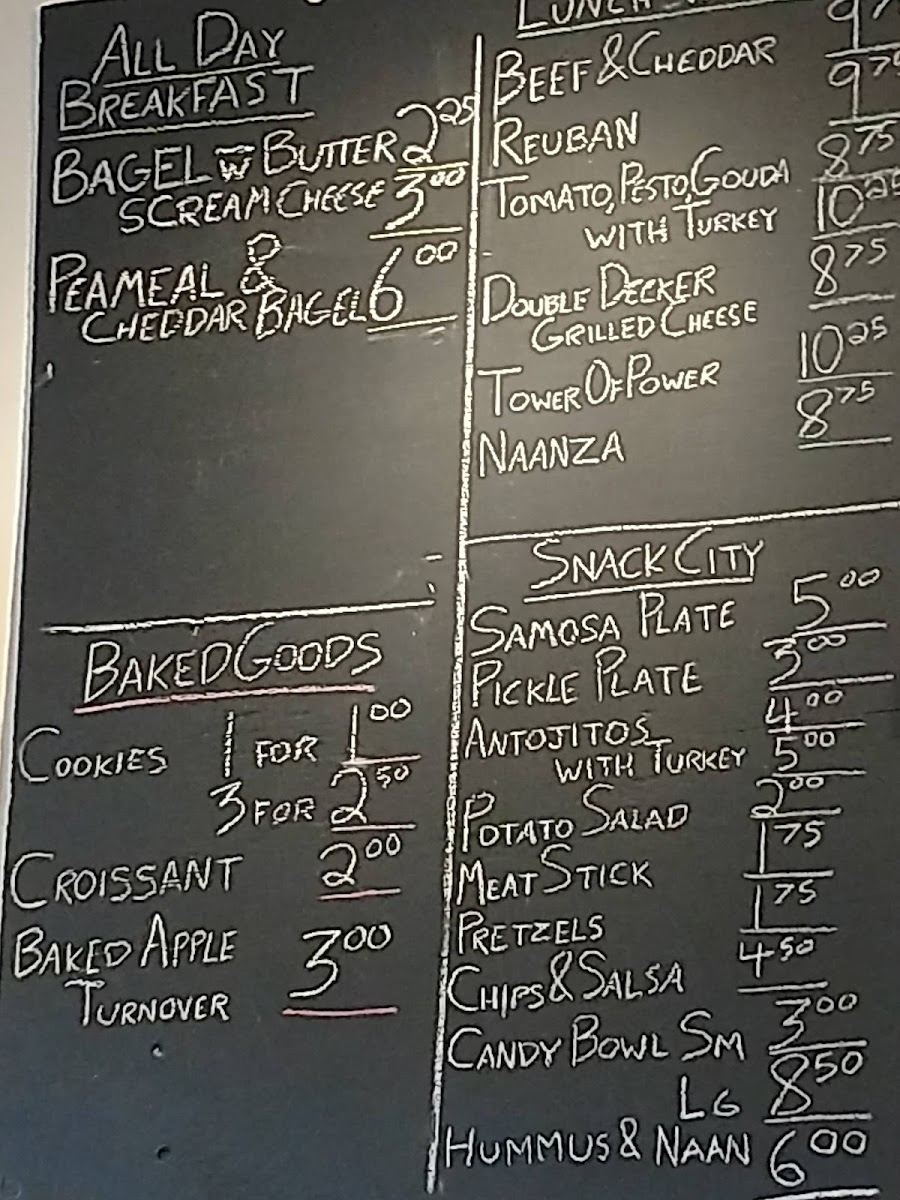 ALL DAY
BREAKFAST
BAGEL W BUTTER 2 25
SCREAM CHEESE 3 00
PEAMEAL &
CHEDDAR BAGEL 6 00
BAKED GOODS
COOKIES 1 FOR 1 00
3 FOR 2 50
CROISSANT 2 00
BAKED APPLE
TURNOVER 3 00
LUNCH
BEEF & CHEDDAR
REUBAN 9 75
TOMATO, PESTO, GOUDA 8 75
WITH TURKEY 10 25
DOUBLE DECKER 8 75
GRILLED CHEESE
TOWER OF POWER 10 25
NAANZA 8 75
SNACK CITY
SAMOSA PLATE 5 00
PICKLE PLATE 3 00
ANTOJITOS 4 00
WITH TURKEY 5 00
POTATO SALAD 2 00
MEAT STICK 1 75
PRETZELS 1 75
CHIPS & SALSA 4 50
CANDY BOWL SM 3 00
LG 8 50
HUMMUS & NAAN 6 00